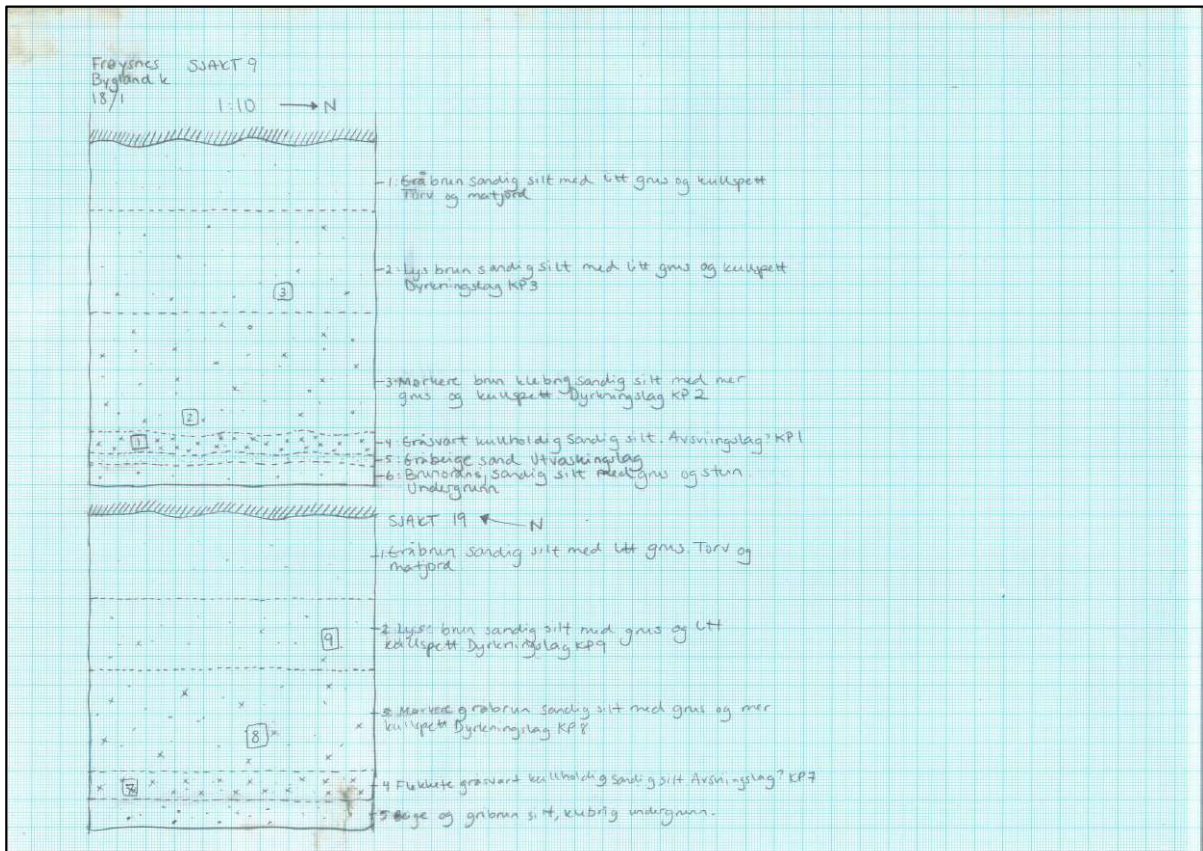 Frøysnes SJAKT 9
Bygland k
18/1
1:10 → N
1: Gråbrun sandig silt med litt grus og kullspett
Torv og matjord
2: Lys brun sandig silt med litt grus og kullspett
Dyrkningslag KP3
3
3: Mørkere brun klebrig sandig silt med mer
grus og kullspett Dyrkningslag KP2
2
1
4: Gråsvart kullholdig sandig silt. Avsvningslag? KP1
5: Gråbeige sand Utvaskingslag
6: Brunorans, sandig silt med grus og stein.
Undergrunn
SJAKT 19 ← N
1 Gråbrun sandig silt med litt grus. Torv og
matjord
9
2 Lys brun sandig silt med grus og litt
kullspett Dyrkningslag KP9
3 Mørkere gråbrun sandig silt med grus og mer
kullspett Dyrkningslag KP8
8
7
4 Flekkete gråsvart kullholdig sandig silt Avsvningslag? KP7
5 Beige og gråbrun silt, klebrig undergrunn.